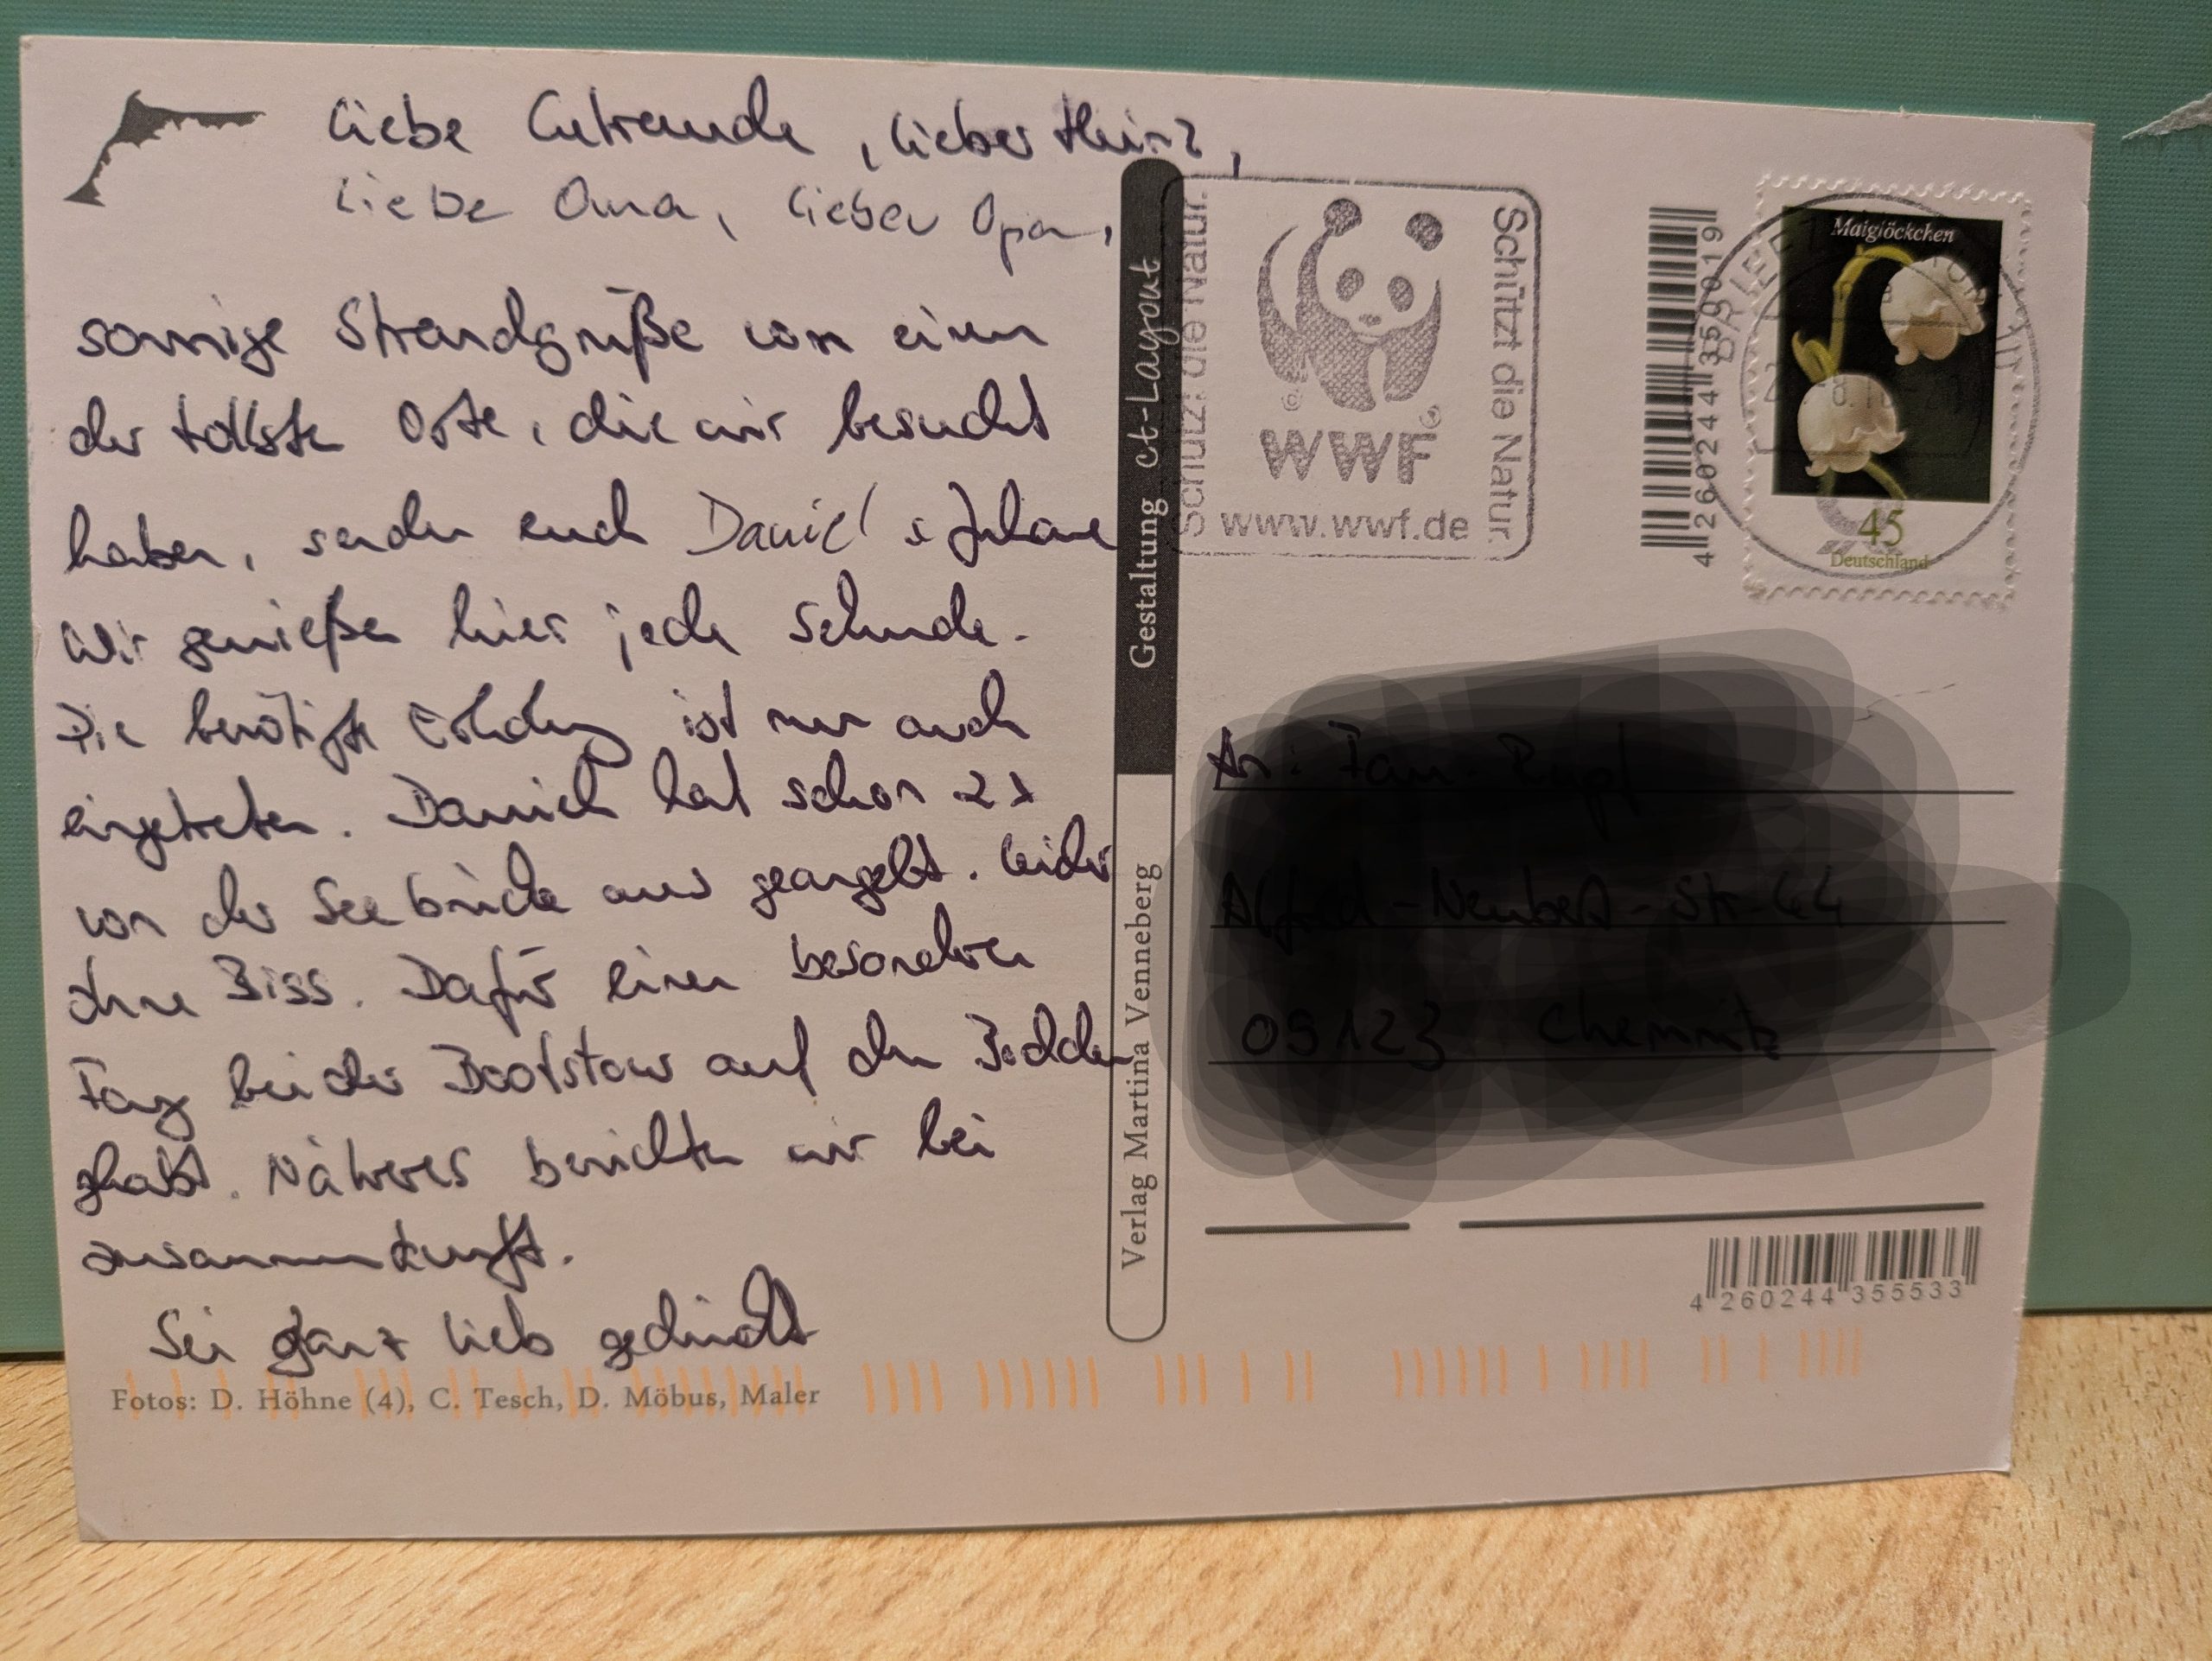 Liebe Gertraude, lieber Heinz,
Liebe Oma, lieber Opa,
sonnige Strandgrüße von einem
der tollsten Orte, die wir besucht
haben, senden euch Daniel & Juliane
Wir genießen hier jede Sekunde.
Die benötigte Erholung ist nun auch
eingetreten. Daniel hat schon 2x
von der Seebrücke aus geangelt. Leider
ohne Biss. Dafür einen besonderen
Fang bei der Bootstour auf den Bodden
gehabt. Näheres berichten wir bei
Zusammenkunft.
Sei ganz lieb gedrückt
Fotos: D. Höhne (4), C. Tesch, D. Möbus, Maler
Gestaltung ct-Layout
Verlag Martina Venneberg
Schützt die Natur.
Schützt die Natur.
WWF
www.wwf.de
4 260244 350019
Maiglöckchen
45
Deutschland
4 260244 355533